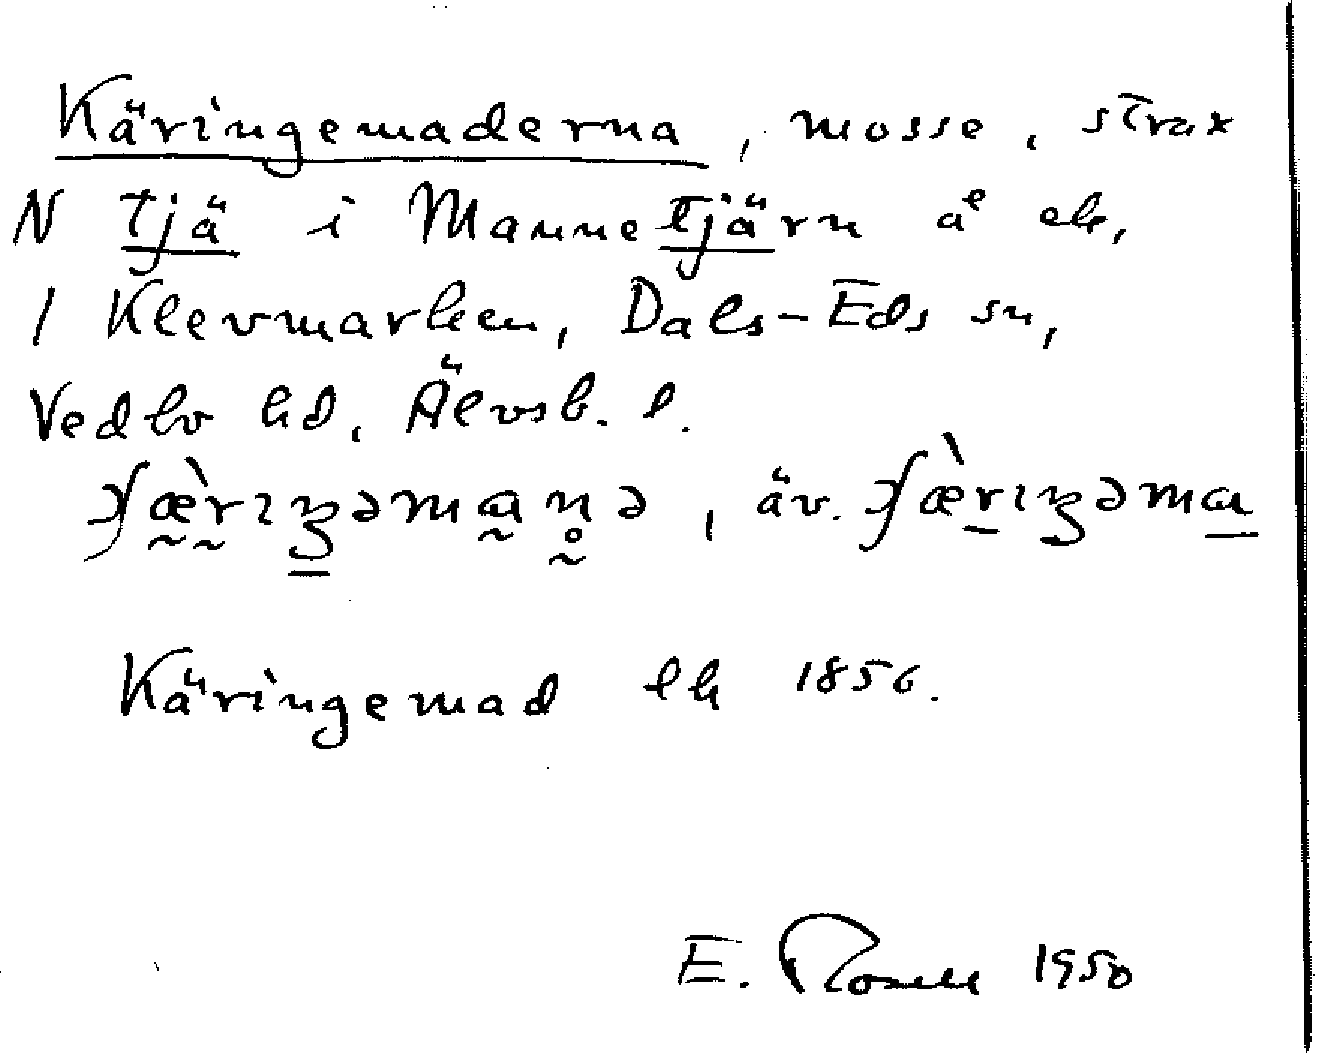 Käringemaderna, mosse, strax
N tjä i Mannetjärn å ek,
1 Klevmarken, Dals-Eds sn,
Vedbo hd, Älvsb. l.
, äv.
Käringemad lh 1856.
E. Rosell 1950